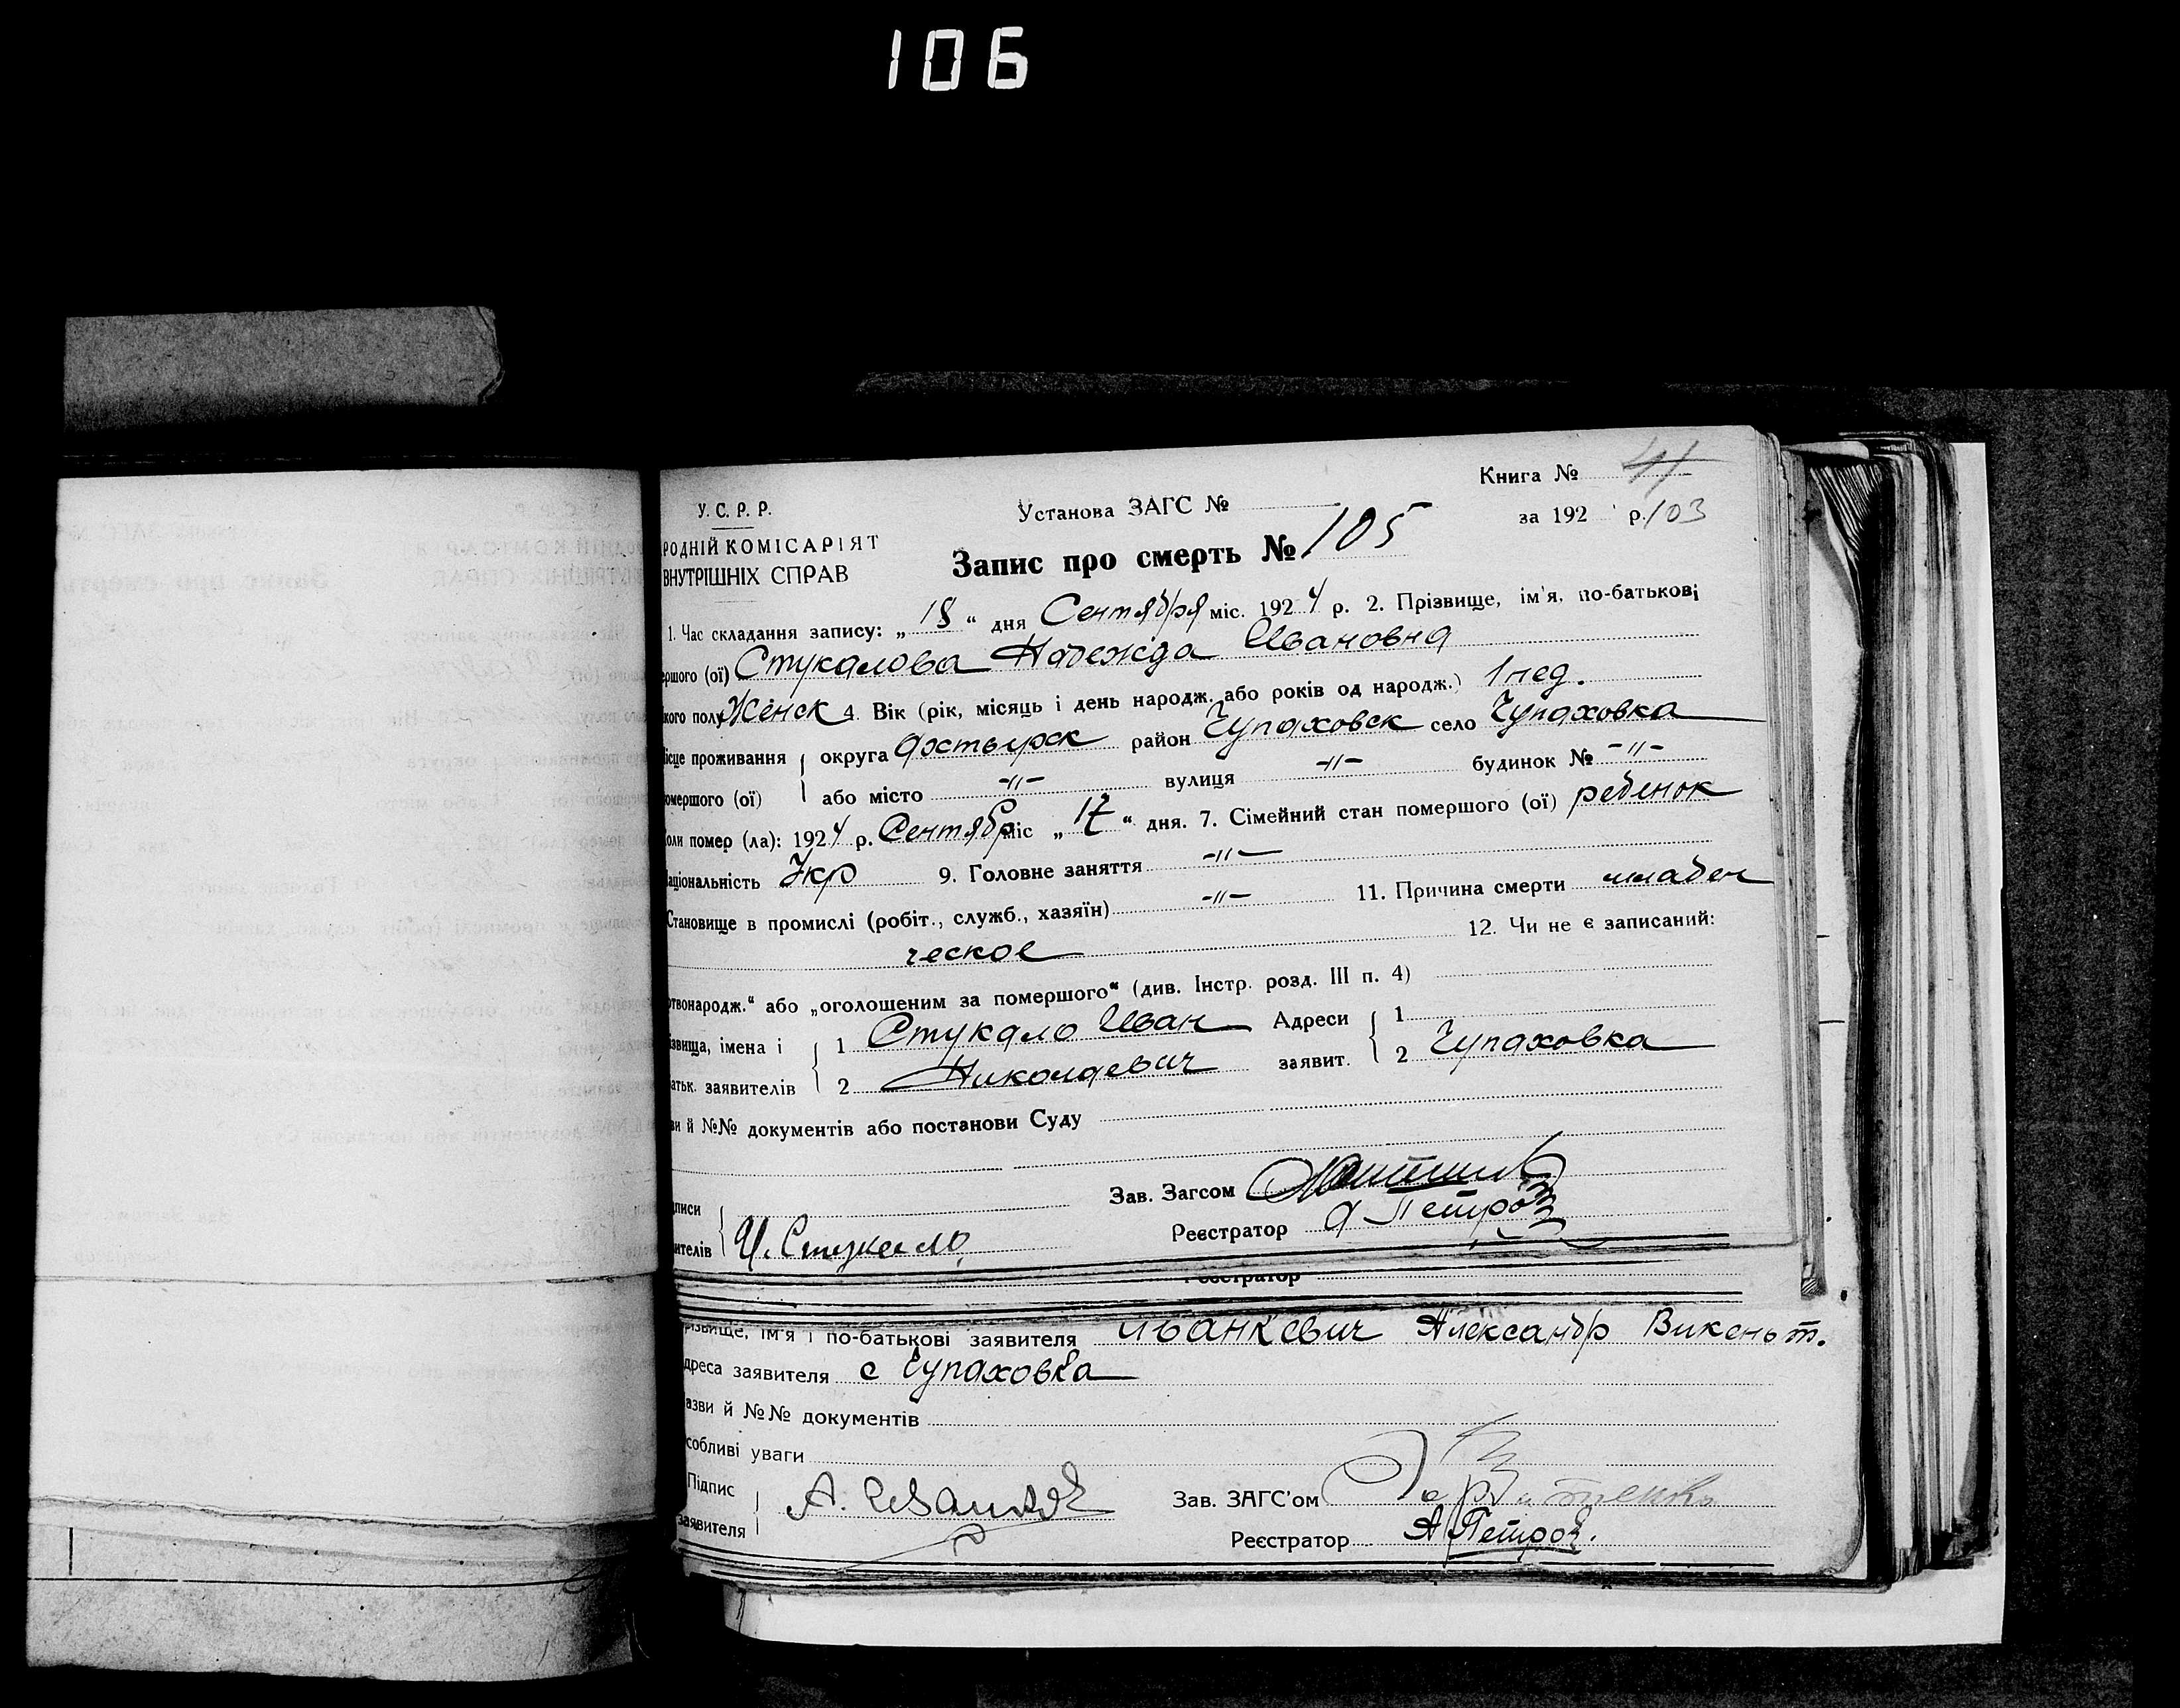 106
Книга № 41
У. С. Р. Р.
Установа ЗАГС №
за 192 р. 103
РОДНІЙ КОМІСАРІЯТ
ВНУТРІШНІХ СПРАВ
Запис про смерть № 105
1. Час складання запису: „ 18 “ дня Сентября міс. 1924 р. 2. Прізвище, ім'я, по-батькові
ершого (ої) Стукалова Надежда Ивановна
кого полу Женск 4. Вік (рік, місяць і день народж. або років од народж.) 1 нед.
ісце проживання округа Ахтырск район Чупаховск село Чупаховка
омершого (ої) або місто -"- вулиця -"- будинок № -"-
оли помер (ла): 1924 р. Сентябр міс „ 17 “ дня. 7. Сімейний стан помершого (ої) ребенок
аціональність Укр 9. Головне заняття -"-
Становище в промислі (робіт., служб., хазяїн) -"- 11. Причина смерти младен
ческое 12. Чи не є записаний:
ртвонародж.“ або „оголошеним за помершого“ (див. Інстр. розд. III п. 4)
ізвища, імена і 1 Стукало Иван Адреси 1
атьк. заявителів 2 Николаевич заявит. 2 Чупаховка
ви й №№ документів або постанови Суду
Зав. Загсом
дписи
Реєстратор А Петров
вителів И. Стукало
Реєстратор
різвище, ім'я і по-батькові заявителя Иванкевич Александр Викеньт.
дреса заявителя с Чупаховка
азви й №№ документів
собливі уваги
Підпис
заявителя А. Иванкев
Зав. ЗАГС'ом
Реєстратор А Петров.